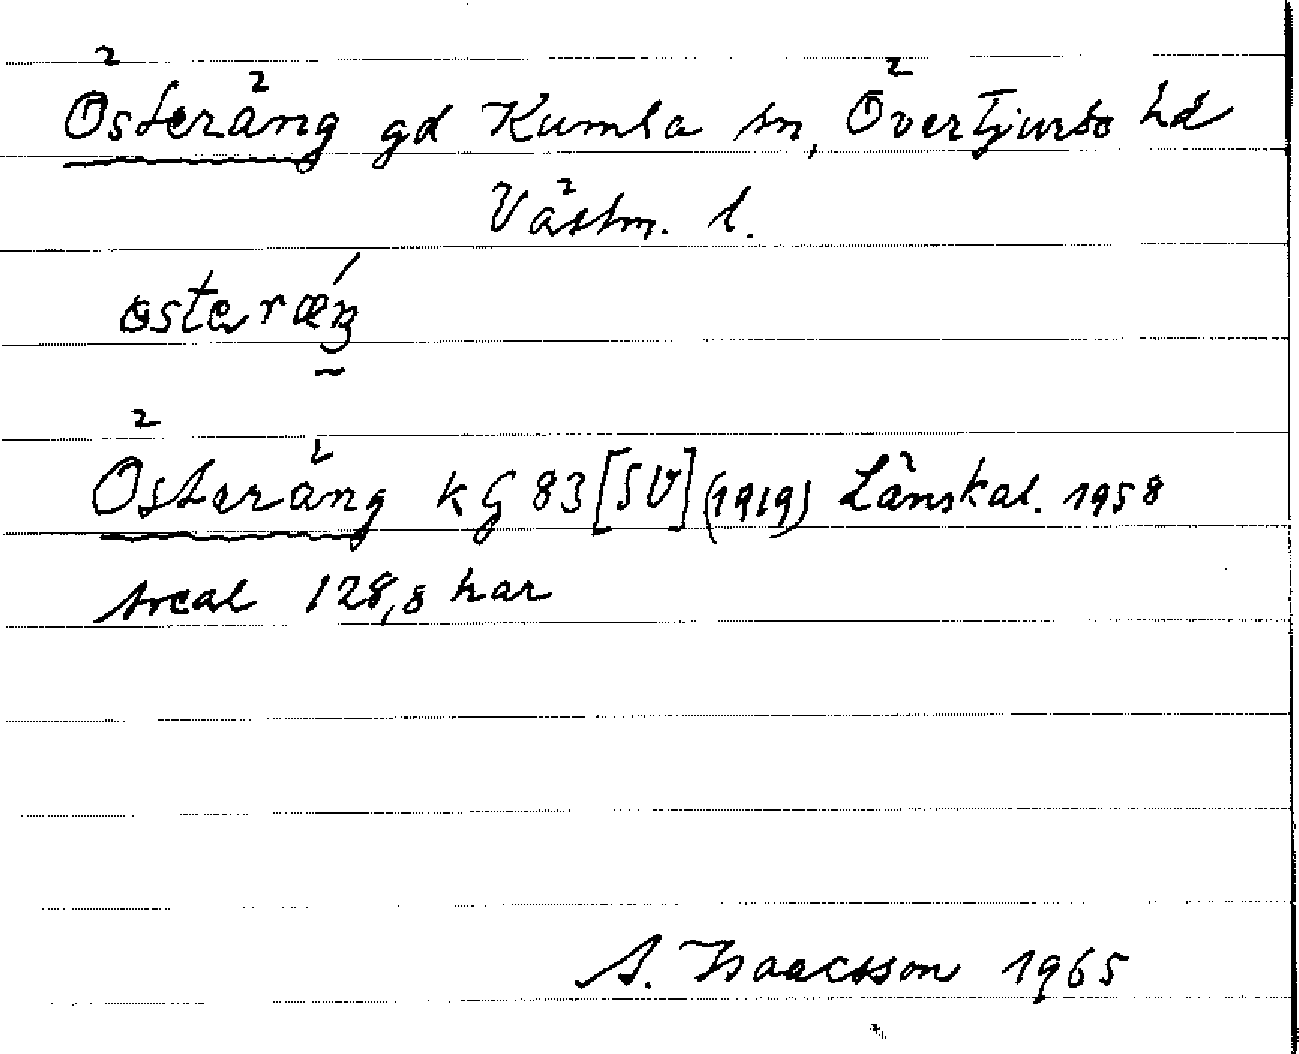 Österäng gd Kumla sn, Övertjurbo hd
Västm. l.
östərǽŋ
Österäng kG 83 [SV] (1919) Länskal. 1958
Areal 128,8 har
A. Isaacsson 1965